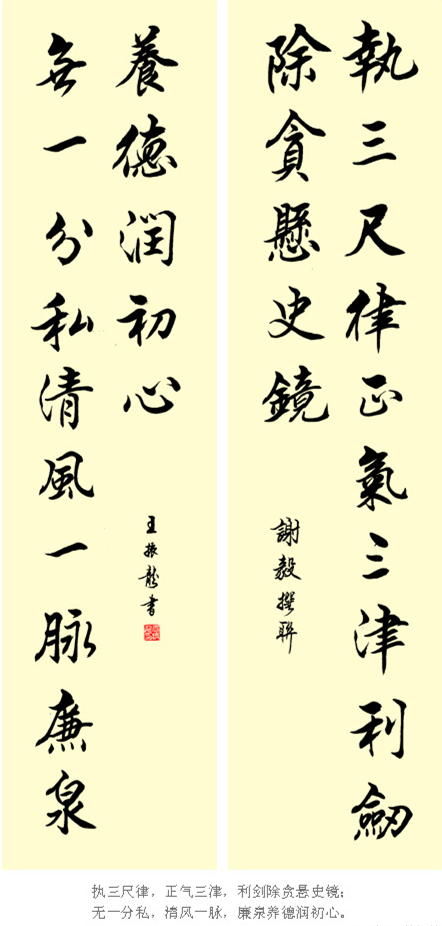 執三尺律正氣三津利劒
除貪懸史鏡
謝毅撰聯
養德潤初心
無一分私清風一脉廉泉
王振龍書
执三尺律，正气三津，利剑除贪悬史镜；
无一分私，清风一脉，廉泉养德润初心。